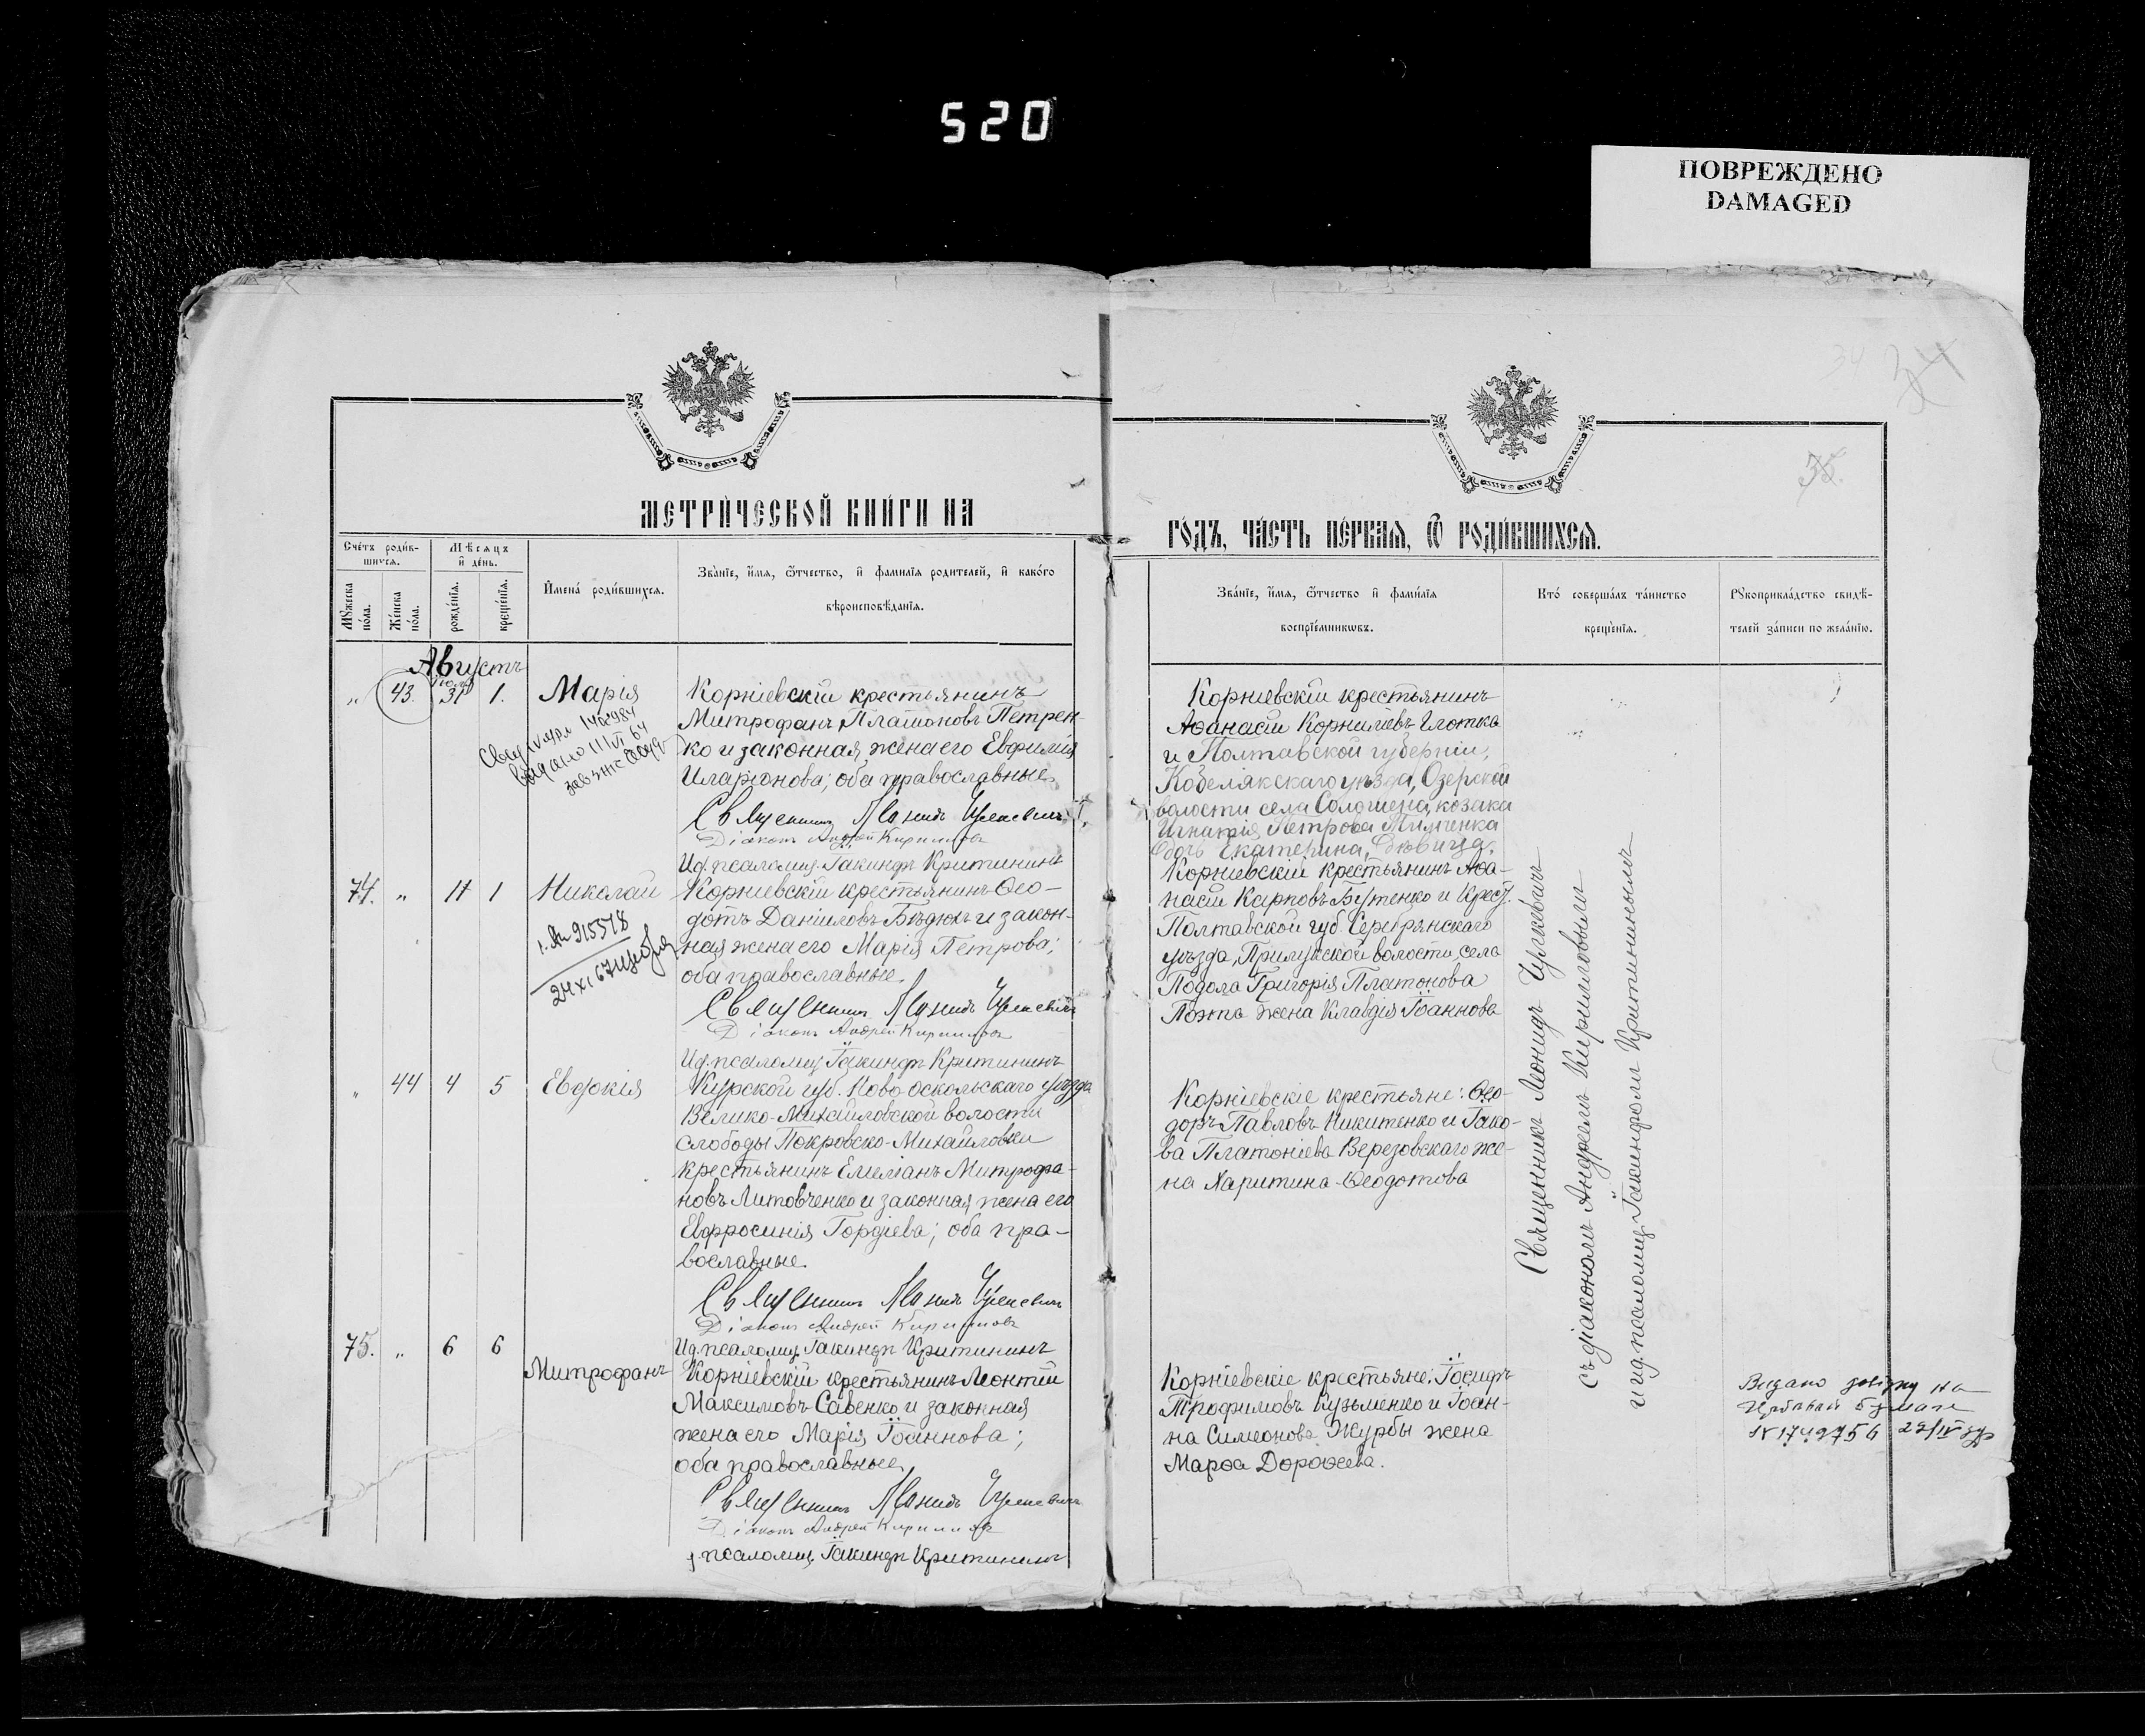 520
ПОВРЕЖДЕНО
DAMAGED
34
34
35.
МЕТРИ́ЧЕСКОЙ КНИ́ГИ НА
ГО́ДЪ, ЧА́СТЬ ПЕ́РВАЯ, Ѽ РОДИ́ВШИХСЯ.
Сче́тъ роди́в-
шихся.
Мѣсяцъ
и҆ де́нь.
Мꙋжеска по́ла.
Же́нска по́ла.
рожде́нїѧ.
креще́нїѧ.
И҆мена̀ роди́вшихся.
Зва̀нїе, и҆́мѧ, ѻ҆́тчество, и҆ фамилїѧ родителей, и҆ како́го
вѣроисповѣ́данїѧ.
Зва́нїе, и҆́мѧ, ѻ҆́тчество и҆ фами́лїѧ
воспрїе́мникѡвъ.
Кто́ соверша́лъ та́инство
креще́нїѧ.
Рꙋкоприкла́дство свидѣ́-
телей за́писи по жела́нїю.
Августъ
" 43. Іюль 31 1. Марія
Корніевскій крестьянинъ
Митрофанъ Платоновъ Петрен-
ко и законная жена его Евфимія
Иларіонова; оба православные
Священникъ Леонидъ Чулкевичъ
Діаконъ Андрей Кириловъ
Ид. псаломщ. Іакинфъ Критининъ
Корніевскій крестьянинъ
Аѳанасій Корниліевъ Глотка
и Полтавской губерніи,
Кобелякскаго уѣзда, Озерской
волости села Солошена, козака
Игнатія Петрова Тимченка
дочь Екатерина, дѣвица.
74. " 11 1 Николай
№ 915578
24 XI 67
Корніевскій крестьянинъ Ѳео-
дотъ Даніиловъ Бѣдюхъ и закон-
ная жена его Марія Петрова;
оба православные.
Священникъ Леонидъ Чулкевичъ
Діаконъ Андрей Кириловъ
Ид. псаломщ. Іакинфъ Критининъ
Корніевскій крестьянинъ Аѳа-
насій Карповъ Бутенко и крест.
Полтавской губ. Серебрянскаго
уѣзда, Прилукской волости, села
Подола Григорія Платонова
жена Клавдія Іоаннова
" 44 4 5 Евдокія
Курской губ. Ново оскольскаго уѣзда
Велико-Михайловской волости
слободы Покровско-Михайловки
крестьянинъ Емеліанъ Митрофа-
новъ Литовченко и законная жена его
Евфросинія Гордіева; оба пра-
вославные.
Священникъ Леонидъ Чулкевичъ
Діаконъ Андрей Кириловъ
Ид. псаломщ. Іакинфъ Критининъ
Корніевскіе крестьяне: Ѳео-
доръ Павловъ Никитенко и Іако-
ва Платоніева Верезовскаго же-
на Харитина Ѳеодотова
75. " 6 6
Митрофанъ
Корніевскій крестьянинъ Леонтій
Максимовъ Савенко и законная
жена его Марія Іоаннова;
оба православные,
Священникъ Леонидъ Чулкевичъ
Діаконъ Андрей Кириловъ
псаломщ. Іакинфъ Критининъ
Корніевскіе крестьяне: Іосифъ
Трофимовъ Кузьменко и Іоан-
на Симеонова Журбы жена
Марѳа Дороѳеева.
Священникъ Леонидъ Чулкевичъ
съ діакономъ Андреемъ Кириловымъ
и ид. псаломщ. Іакинфомъ Критининымъ
Видано довідку на